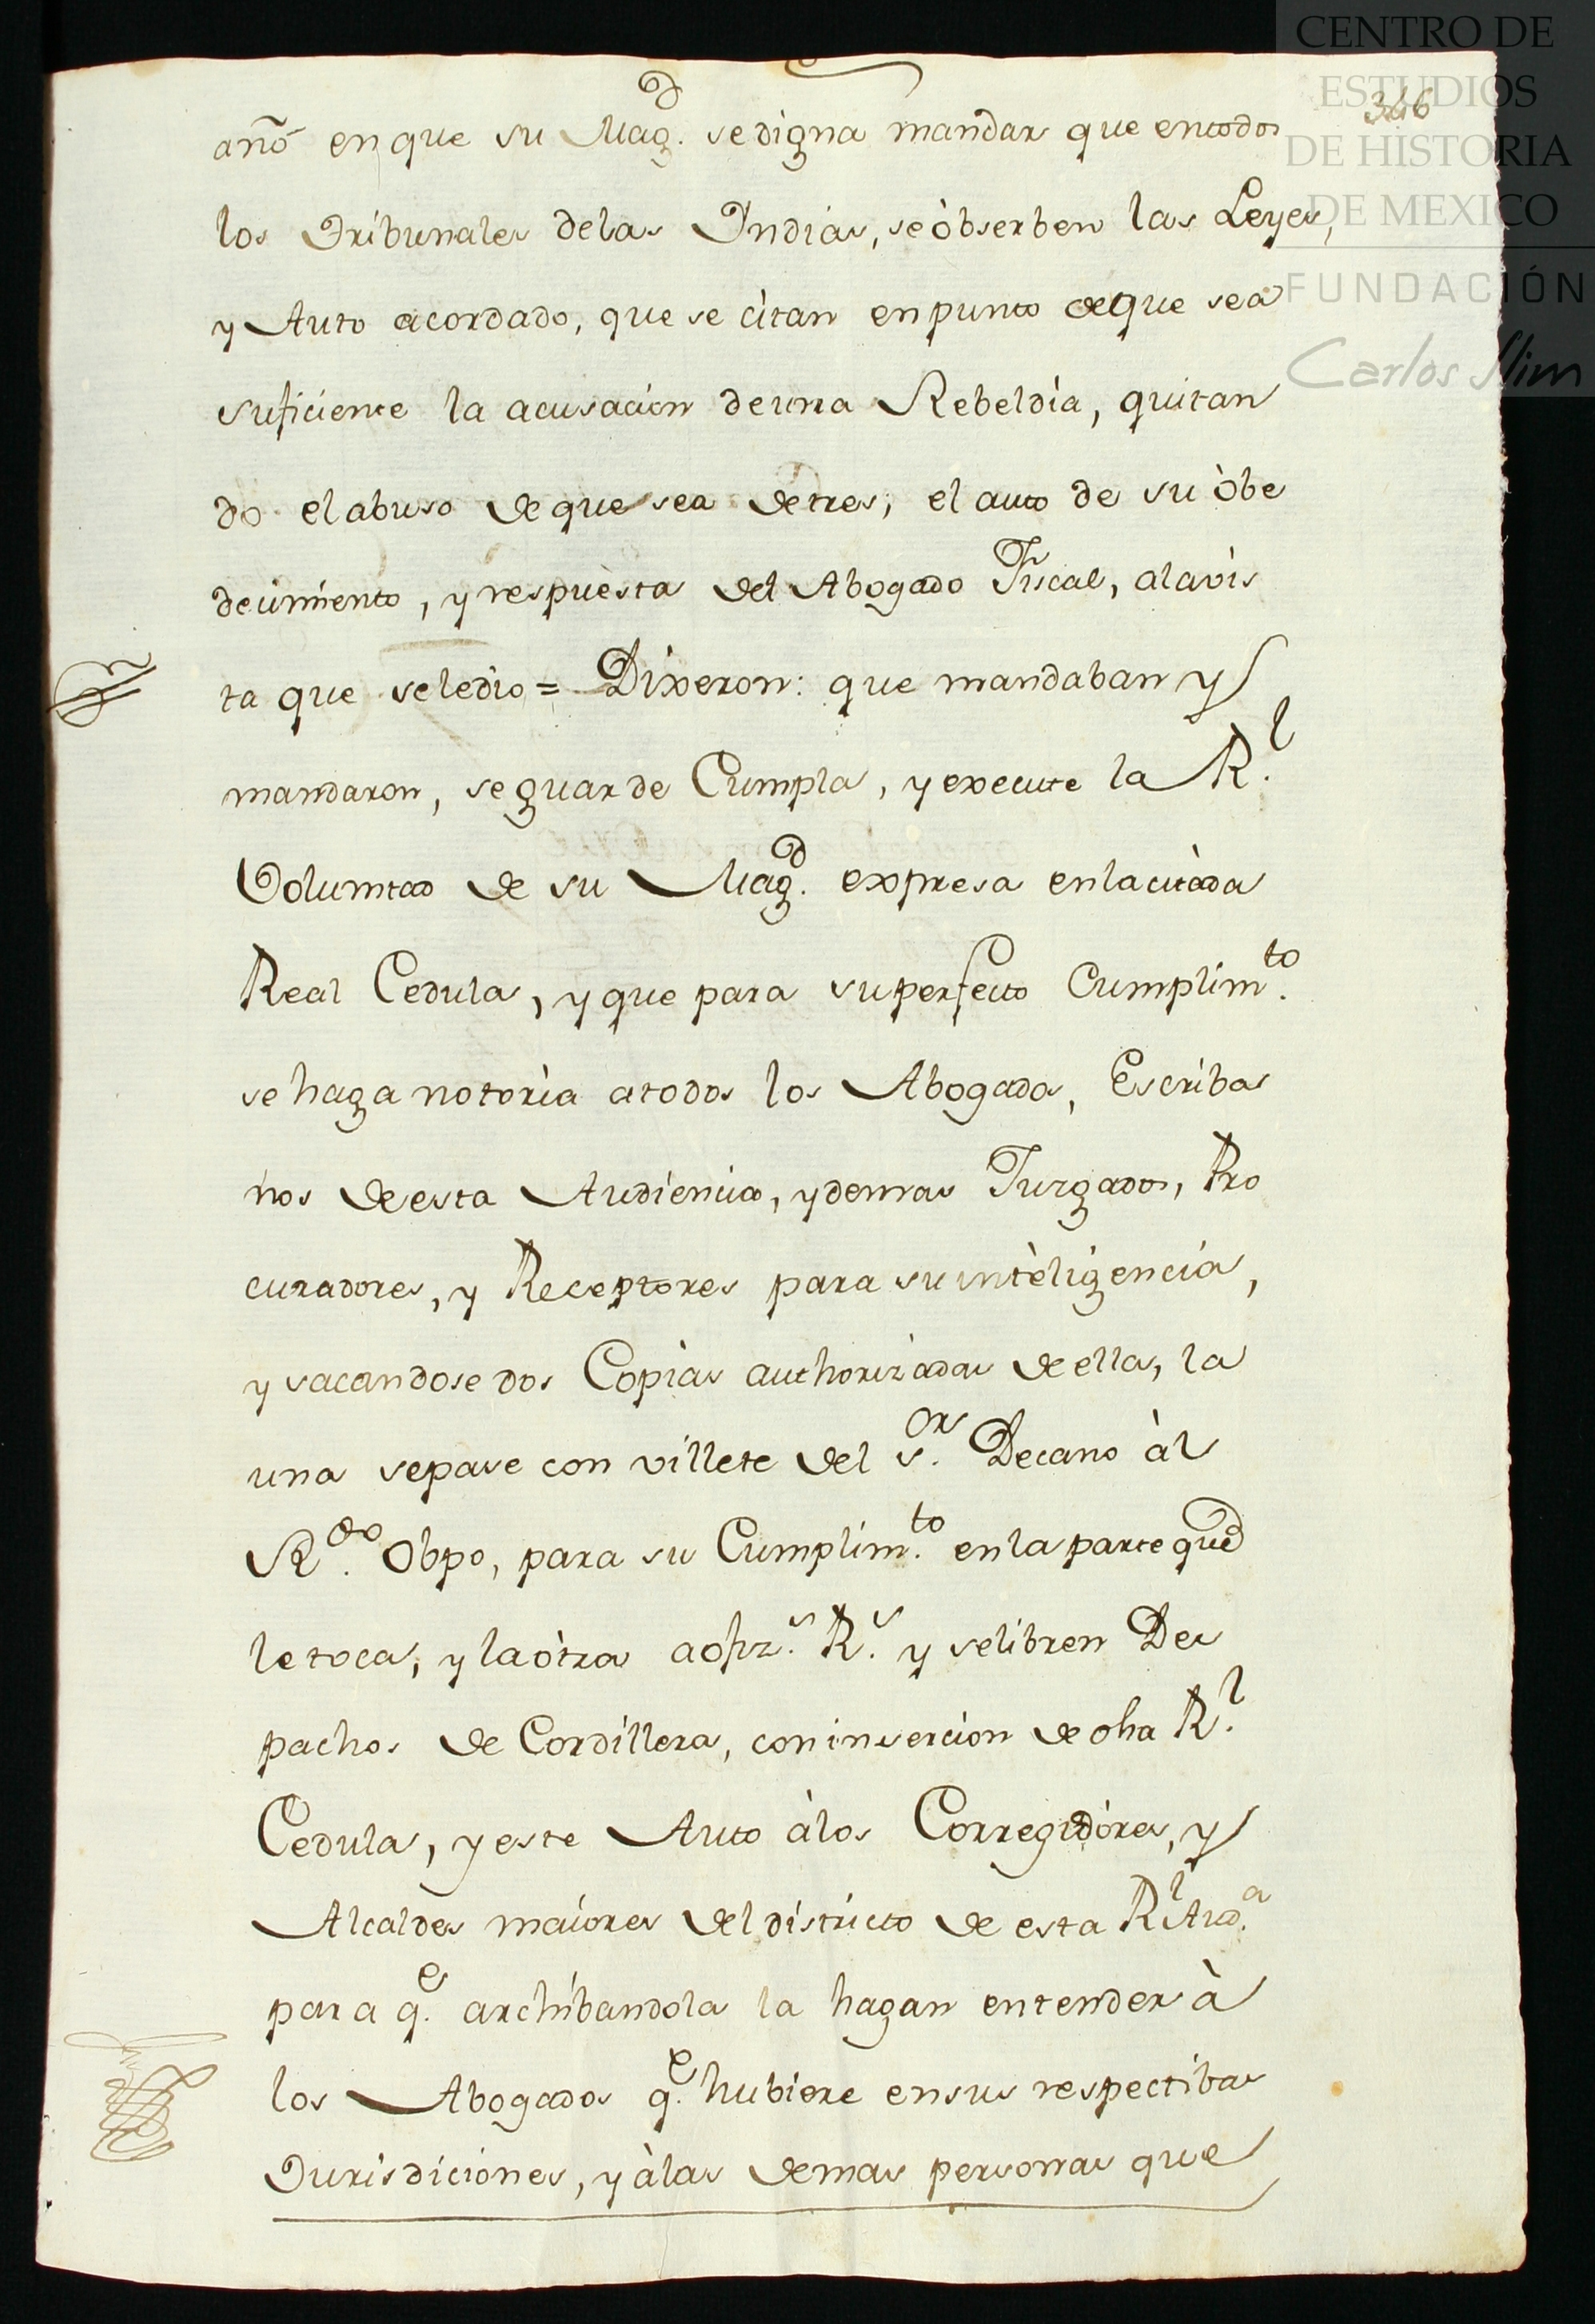 CENTRO DE
ESTUDIOS
DE HISTORIA
DE MEXICO
FUNDACIÓN
Carlos Slim
346
año en que su Mag.d se digna mandar que entodos
los Tribunales delas Indias, se òbserben las Leyes,
y Auto acordado, que se citan en punto deque sea
suficiente la acusacion deuna Rebeldia, quitan
do el abuso de que sea detres; el auto de su òbe
decimiento, y respuesta del Abogado Fiscal, alavis
ta que seledio = Dixeron: que mandaban y
mandaron, se guarde Cumpla, y execute la R.l
Voluntad de su Mag.d expresa enlacitada
Real Cedula, y que para superfecto Cumplim.to
se haga notoria atodos los Abogados, Escriba
nos de esta Audiencia, y demas Juzgados, Pro
curadores, y Receptores para su inteligencia,
y sacandose dos Copias authorizadas de ella, la
una sepase con villete del s.or Decano àl
R.do Obpo, para su Cumplim.to en la parte que
le toca, y la òtra a ofiz.s R.s y selibren Des
pachos de Cordillera, con insercion de dha R.l
Cedula, y este Auto àlos Corregidòres, y
Alcaldes maiores del districto de esta R.l Aud.a
para q.e archibandola la hagan entender à
los Abogados q.e hubiere ensus respectibas
Jurisdiciones, y àlas demas personas que